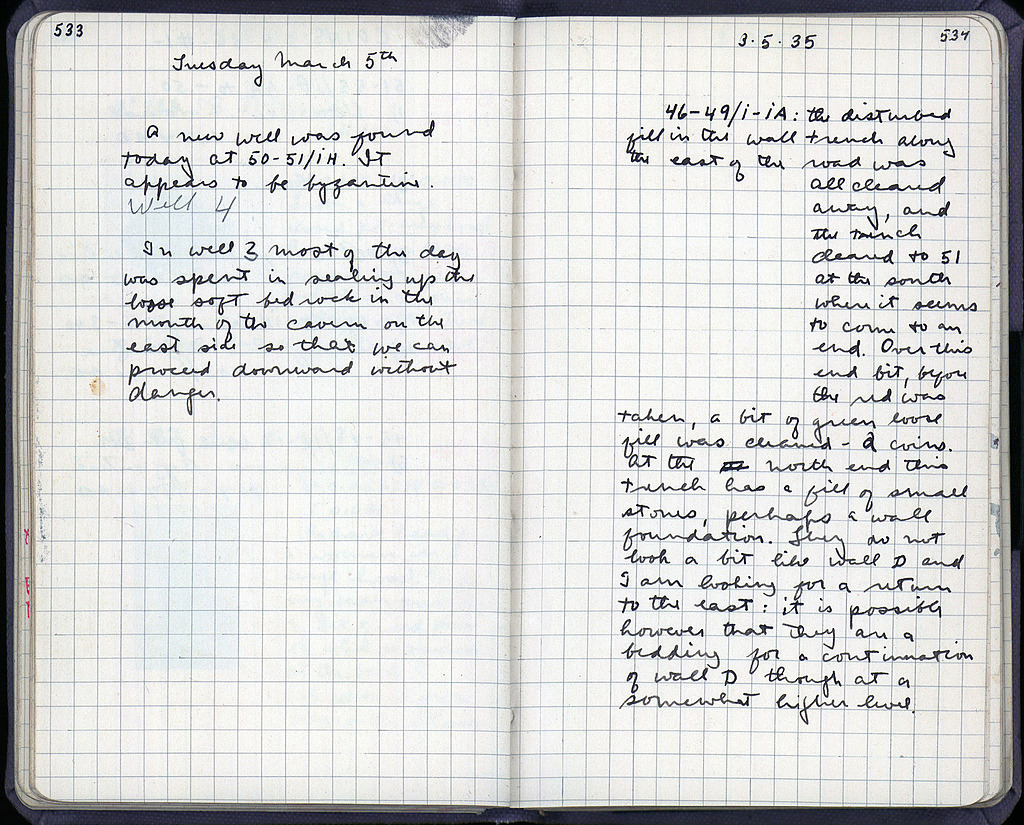 533
Tuesday March 5th
A new well was found
today at 50-51/IH. It
appears to be byzantine.
Well 4
In well 3 most of the day
was spent in sealing up the
loose soft bed rock in the
mouth of the cavern on the
east side so that we can
proceed downward without
danger.
3·5·35
534
46-49/I-IA: the disturbed
fill in the wall trench along
the east of the road was
all cleared
away, and
the trench
cleared to 51
at the south
where it seems
to come to an
end. Over this
end bit, before
the red was
taken, a bit of green loose
fill was cleaned - 2 coins.
At the north end this
trench has a fill of small
stones, perhaps a wall
foundation. They do not
look a bit like wall D and
I am looking for a return
to the east: it is possible
however that they are a
bedding for a continuation
of wall D though at a
somewhat higher level.